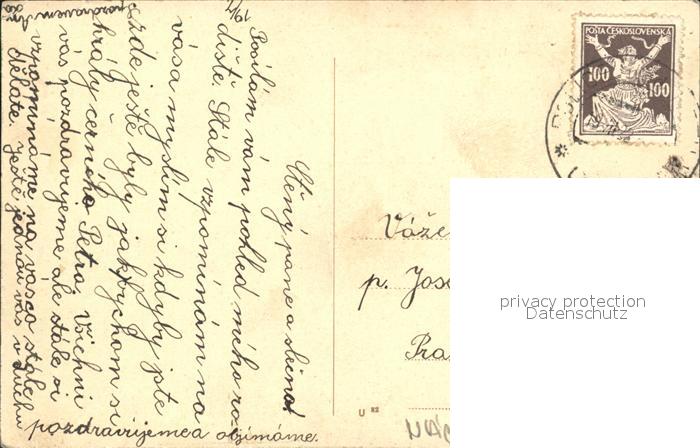 19/4
Ctěný pane a slečno!
Posílám vám pohled mého ro-
diště. Stále vzpomínám na
vás a myslím si kdyby jste
zde ještě byly jak bychom si
hrály černého Petra. Všichni
vás pozdravujeme ale stále si
vzpomínáme na vás co stále
děláte. Ještě jednou vás v duchu
pozdravujeme a objímáme.
S pozdravem
POŠTA ČESKOSLOVENSKÁ
100
100
Váže
p. Jose
Pra
U 82
privacy protection
Datenschutz